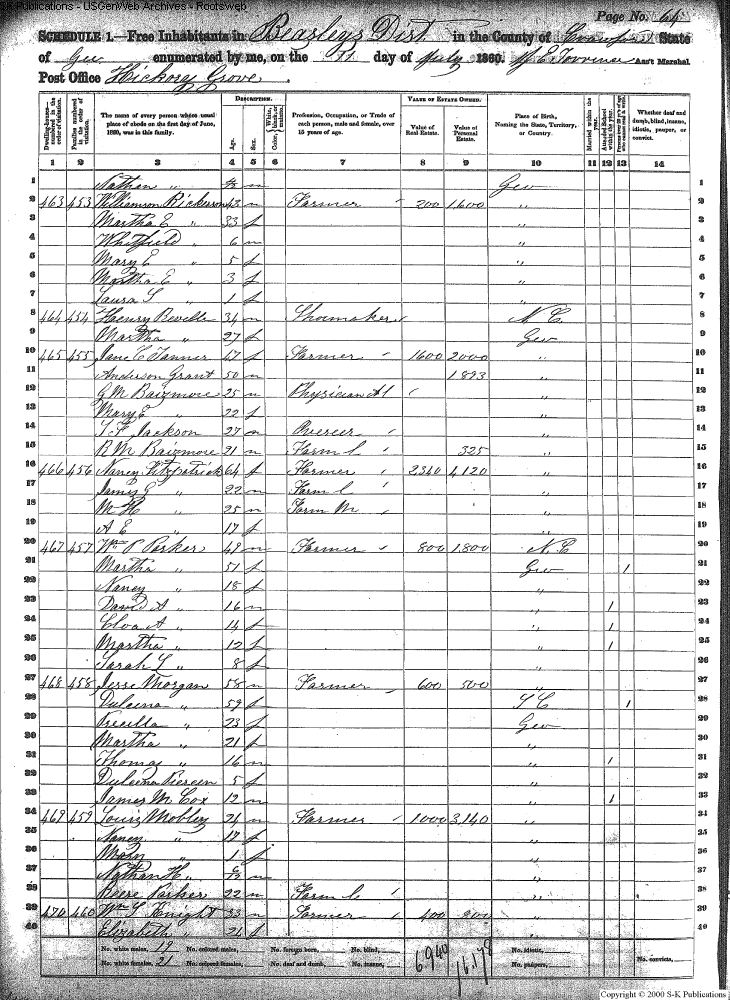 S-K Publications - USGenWeb Archives - Rootsweb
Page No. 66
SCHEDULE 1.—Free Inhabitants in Beasleys Dist in the County of Crawford State
of Geo enumerated by me, on the day of July 1860. Ass't Marshal
Post Office Hickory Grove.
Dwelling-houses—numbered in the order of visitation. Families numbered in the order of visitation. The name of every person whose usual place of abode on the first day of June, 1860, was in this family. DESCRIPTION. Age. Sex. Color, White, black, or mulatto. Profession, Occupation, or Trade of each person, male and female, over 15 years of age. VALUE OF ESTATE OWNED. Value of Real Estate. Value of Personal Estate. Place of Birth, Naming the State, Territory, or Country. Married within the year. Attended School within the year. Whether deaf and dumb, blind, insane, idiotic, pauper, or convict.
1 2 3 4 5 6 7 8 9 10 11 12 13 14
1 Nathan " m Geo 1
2 463 453 Williamson Rickerson 43 m Farmer 200 1,600 " 2
3 Martha E " 33 f " 3
4 Whitfield " 6 m " 4
5 Mary E " 5 f " 5
6 Martha E " 3 f " 6
7 Laura S " 1 f " 7
8 464 454 Henry Beville 34 m Shoemaker N. C. 8
9 Martha " 27 f Geo 9
10 465 455 Jane C Tanner 47 f Farmer 1600 2000 " 10
11 Anderson Grant 50 m 1,893 " 11
12 G M Baizmore 25 m Physician " 12
13 Mary E " 22 f " 13
14 Jackson 27 m Overseer " 14
15 R M Baizmore 21 m Farm L 325 " 15
16 466 456 Nancy Fitzpatrick 64 f Farmer 2340 4,120 " 16
17 James E " 22 m Farm L " 17
18 M H " 25 m Farm M " 18
19 A E " 17 f " 19
20 467 457 Wm P Parker 49 m Farmer 800 1,800 N. C. 20
21 Martha " 51 f Geo 1 21
22 Nancy " 18 f " 22
23 David A " 16 m " 1 23
24 Cloa A " 14 f " 1 24
25 Martha " 12 f " 1 25
26 Sarah L " 8 f " 26
27 468 458 Jesse Morgan 58 m Farmer 600 500 " 27
28 Dulcena " 59 f S C 1 28
29 " 23 f Geo 29
30 Martha " 21 f " 30
31 Thomas " 16 m " 1 31
32 Dulcena 5 f " 32
33 James M Cox 12 m " 1 33
34 469 459 Louis Mobley 24 m Farmer 1000 3,140 " 34
35 Nancy " 17 f " 35
36 Mary " 1 f " 36
37 Nathan H " m " 37
38 Parker 22 m Farm L " 38
39 470 460 Wm S Knight 33 m Farmer 400 " 39
40 Elizabeth " 24 f " 40
No. white males, 19 No. colored males, No. foreign born, No. blind, 6940 16,178 No. idiotic,
No. white females, 21 No. colored females, No. deaf and dumb, No. insane, No. paupers, No. convicts,
Copyright © 2000 S-K Publications